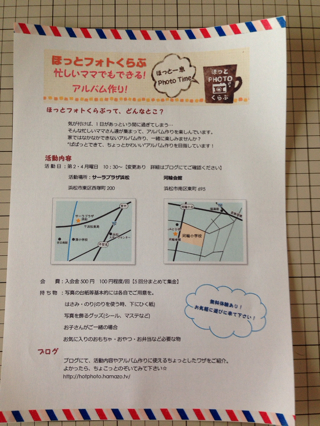 ほっとフォトくらぶ
忙しいママでもできる!
アルバム作り!
ほっと一息
Photo Time
ほっと
PHOTO
くらぶ
ほっとフォトくらぶって、どんなとこ?
気が付けば、1日があっという間に過ぎてしまう…
そんな忙しいママさん達が集まって、アルバム作りを楽しんでいます。
家ではなかなかできないアルバム作り、一緒に楽しみませんか?
"ぱぱっとできて、ちょっとかわいい"アルバム作りを目指しています!
活動内容
活 動 日:第2・4月曜日 10:30~【変更あり 詳細はブログにてご確認ください】
活動場所:サーラプラザ浜松
浜松市東区西塚町 200
会 費:入会金 500 円 100 円程度/回【5 回分まとめて集金】
持 ち 物:写真の台紙等基本的には各自でご用意。
はさみ・のり(のりを使う時、下にひく紙)
写真を飾るグッズ(シール、マステなど)
お子さんがご一緒の場合
お気に入りのおもちゃ・おやつ・お弁当など必要な物
無料体験あり!
お気軽に遊びに来て下さい!
ブログ
ブログにて、活動内容やアルバム作りに使えるちょっとしたワザをご紹介。
よかったら、ちょこっとのぞいてみて下さい☆
http://hotphoto.hamazo.tv/